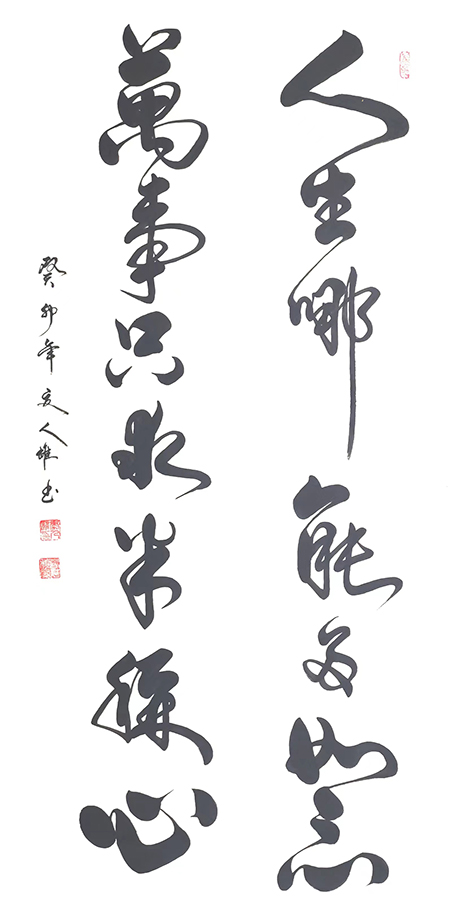 人生哪能多如意
萬事只求半稱心
癸卯年文人雄书